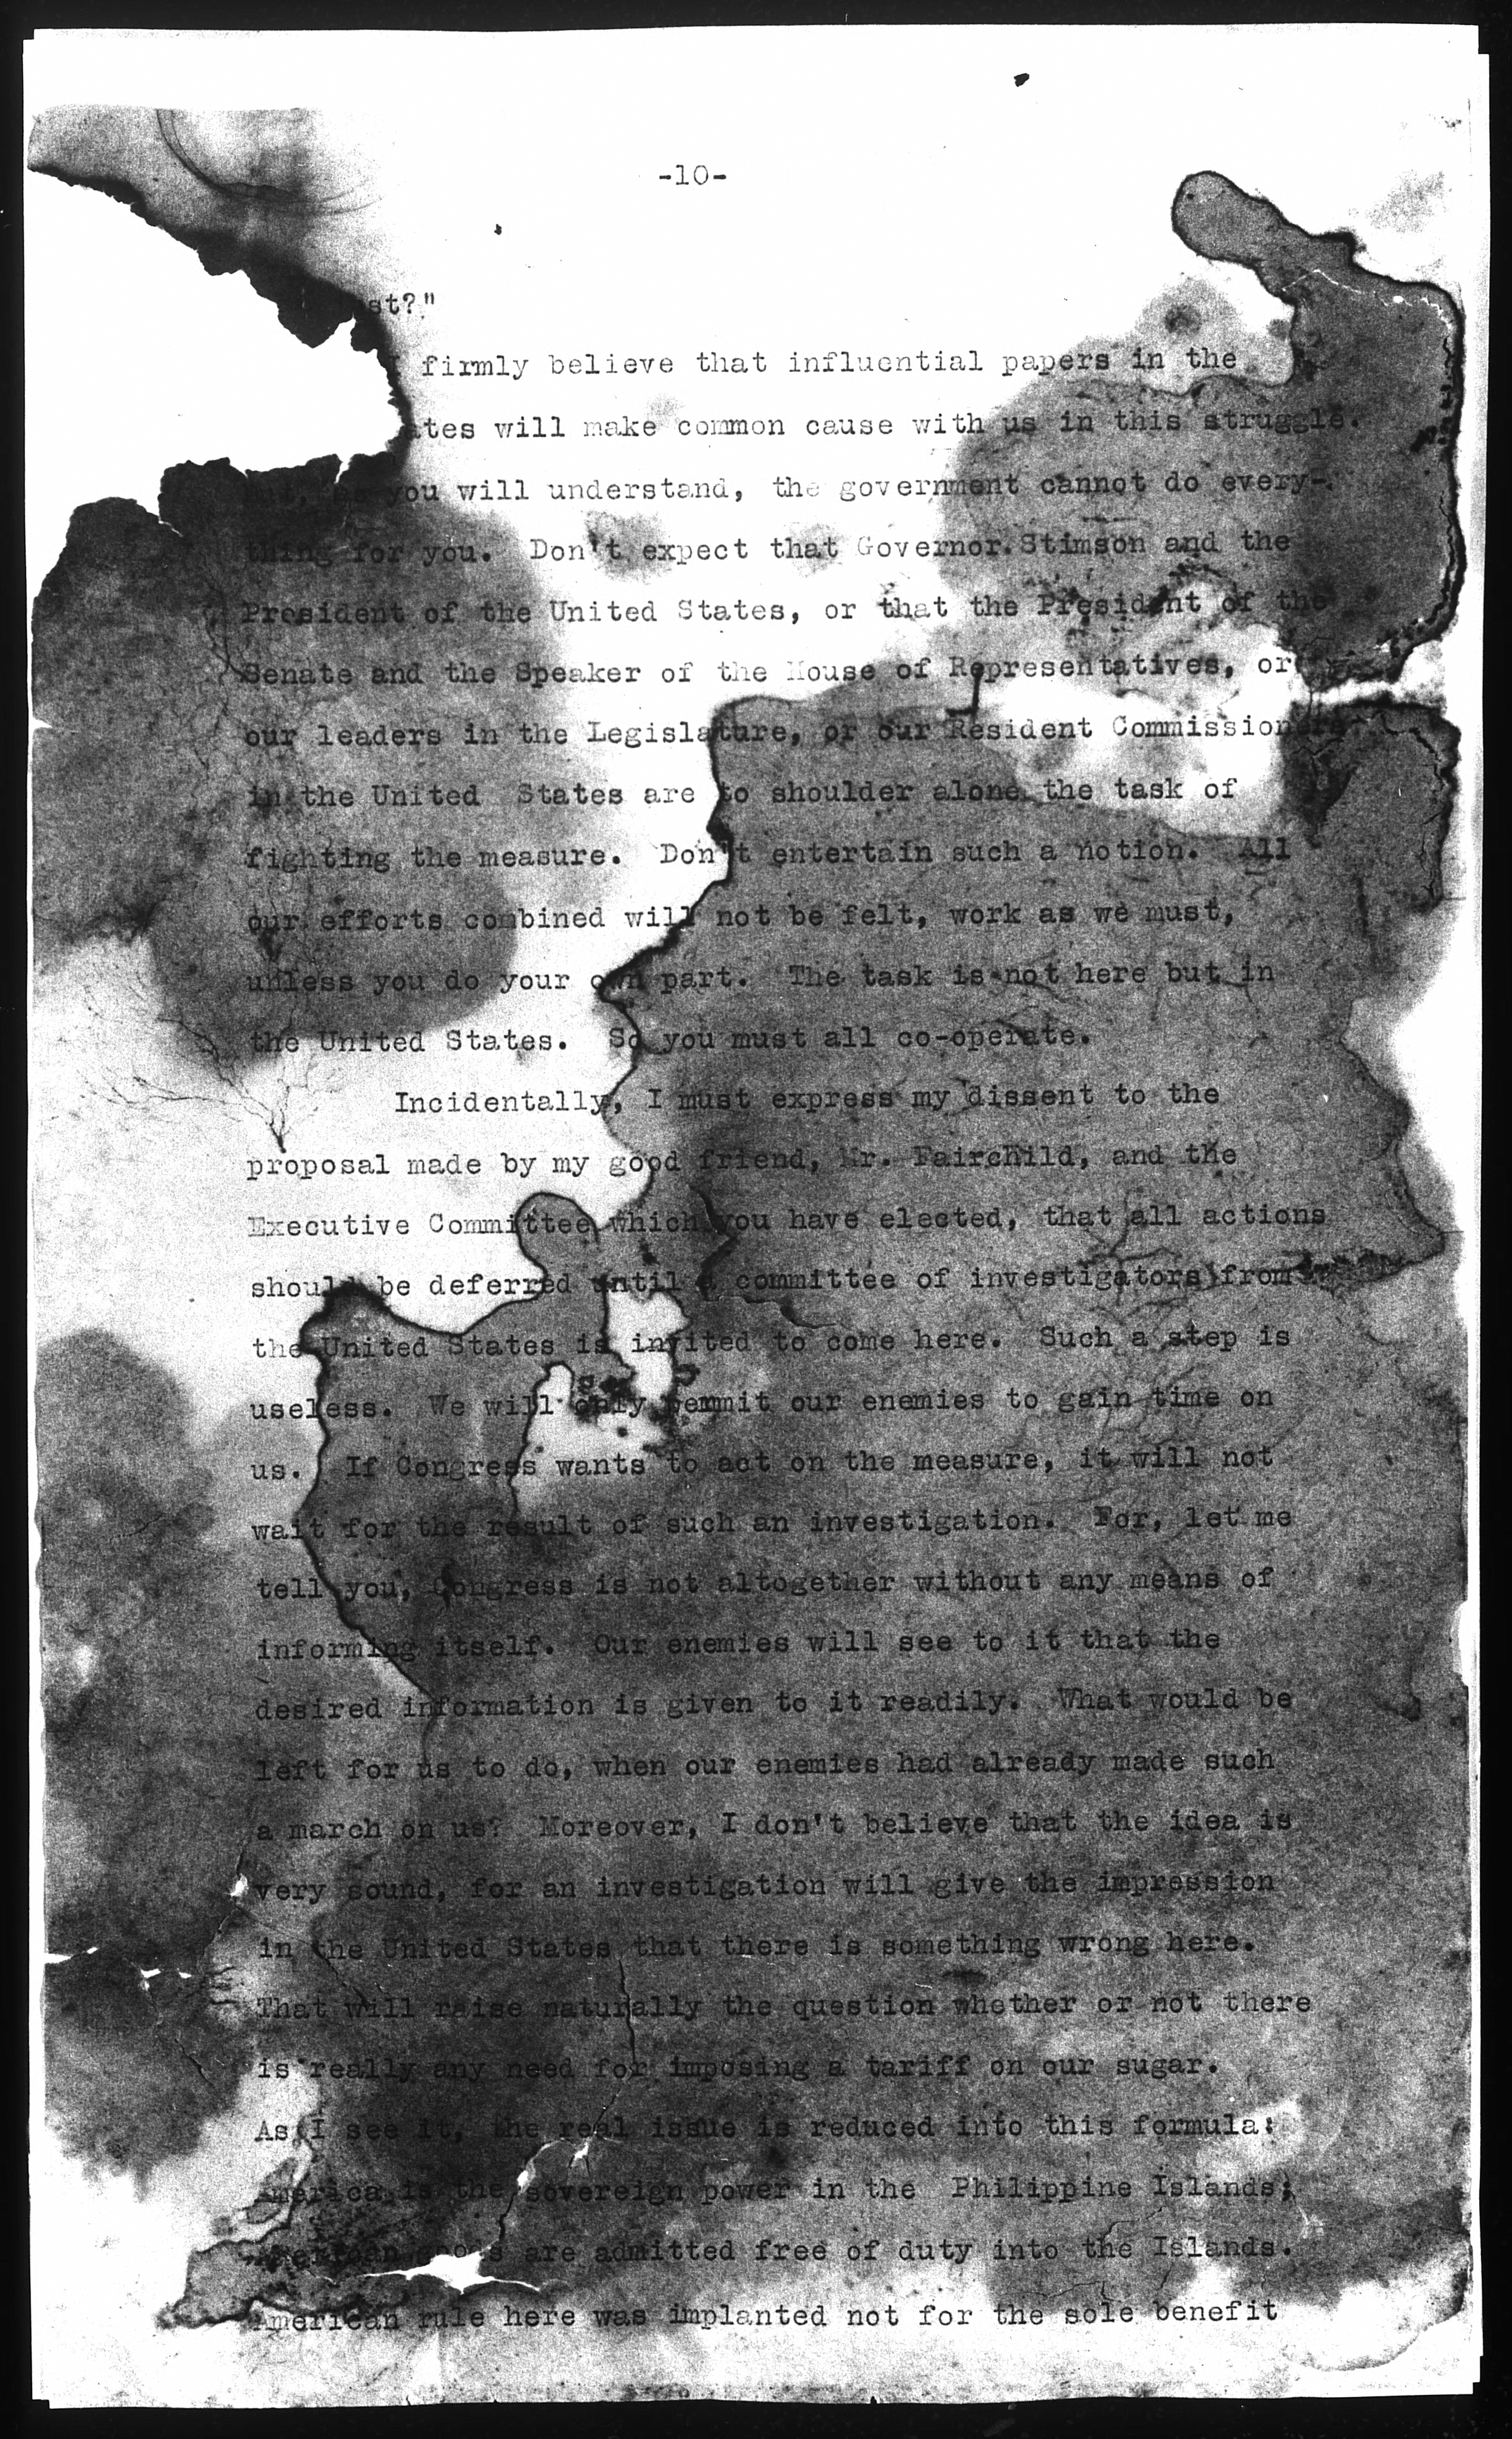 -10-
st?"
I firmly believe that influential papers in the
ates will make common cause with us in this struggle.
But, as you will understand, the government cannot do every-
thing for you. Don't expect that Governor Stimson and the
President of the United States, or that the President of the
Senate and the Speaker of the House of Representatives, or
our leaders in the Legislature, or our Resident Commissioners
in the United States are to shoulder alone the task of
fighting the measure. Don't entertain such a notion. All
our efforts combined will not be felt, work as we must,
unless you do your own part. The task is not here but in
the United States. So you must all co-operate.
Incidentally, I must express my dissent to the
proposal made by my good friend, Mr. Fairchild, and the
Executive Committee which you have elected, that all actions
should be deferred until a committee of investigators from
the United States is invited to come here. Such a step is
useless. We will only permit our enemies to gain time on
us. If Congress wants to act on the measure, it will not
wait for the result of such an investigation. For, let me
tell you, Congress is not altogether without any means of
informing itself. Our enemies will see to it that the
desired information is given to it readily. What would be
left for us to do, when our enemies had already made such
a march on us? Moreover, I don't believe that the idea is
very sound, for an investigation will give the impression
in the United States that there is something wrong here.
That will raise naturally the question whether or not there
is really any need for imposing a tariff on our sugar.
As I see it, the real issue is reduced into this formula:
America is the sovereign power in the Philippine Islands;
American goods are admitted free of duty into the Islands.
American rule here was implanted not for the sole benefit